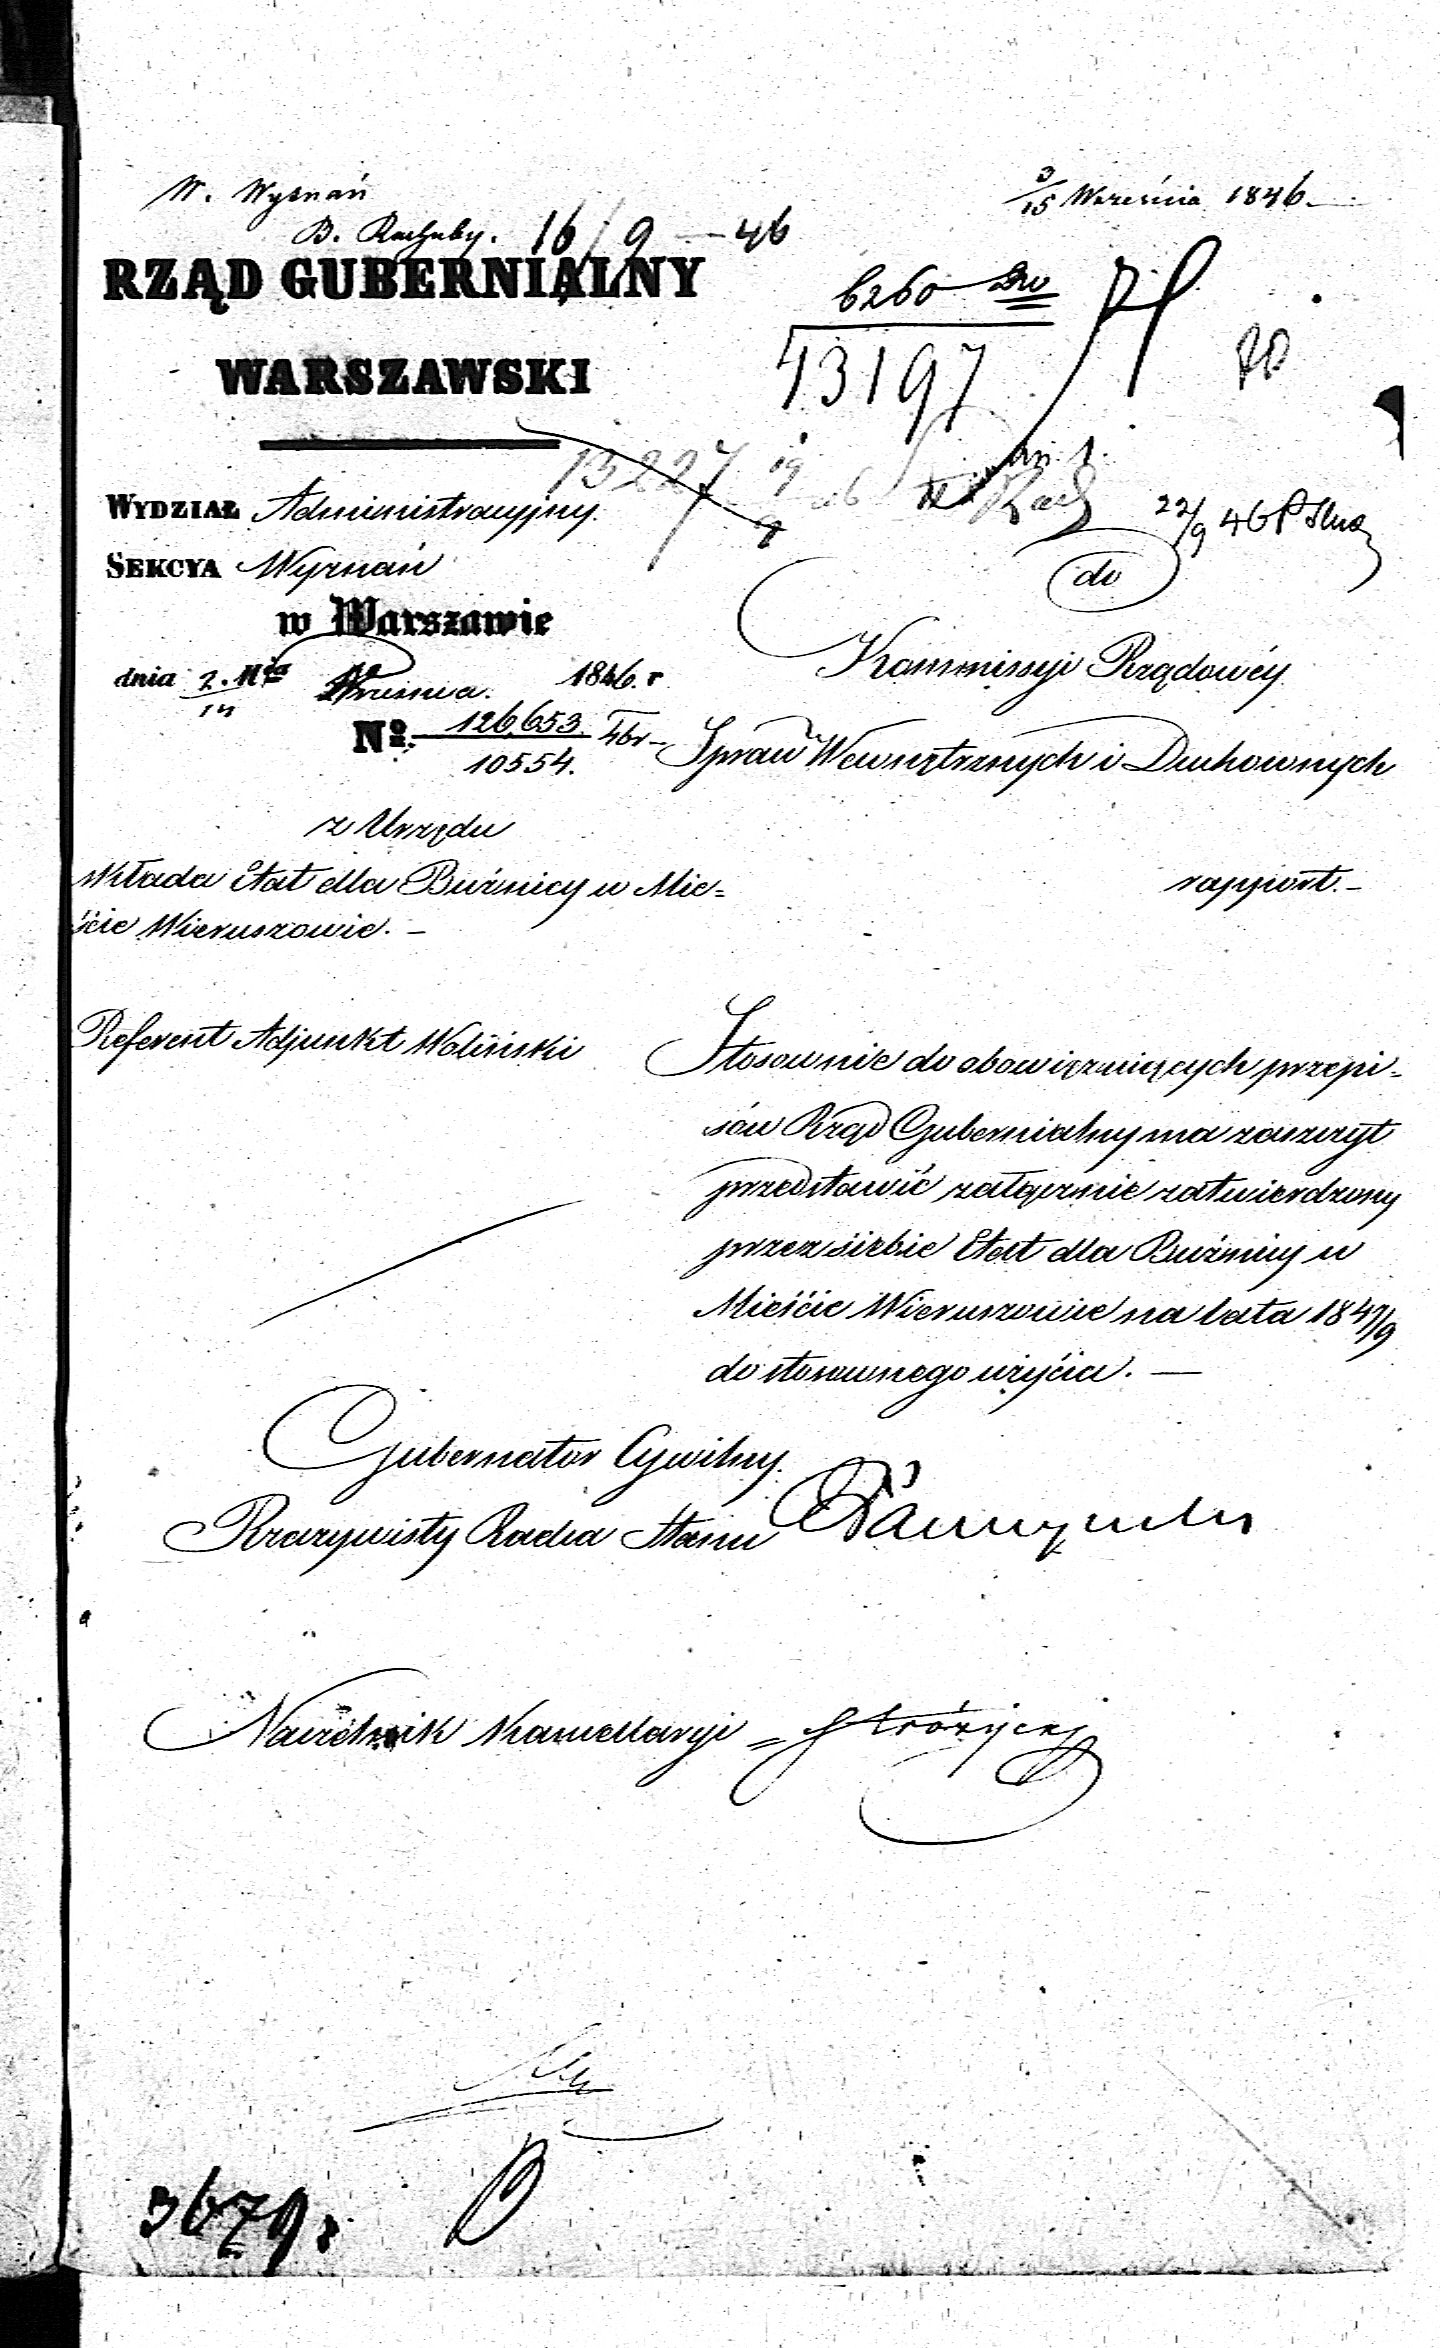 W. Wyznań
3/15 Września 1846.
B. Rachuby. 16/9 – 46
RZĄD GUBERNIALNY
WARSZAWSKI
6260
13197
13227
22/9 46
WYDZIAŁ Administracyjny.
SEKCYA Wyznań
do
w Warszawie
dnia 2/14 Września 1846. r
Kommissyi Rządowéy
No. 126,653/10554.
Spraw Wewnętrznych i Duchownych
z Urzędu
składa Etat dla Bużnicy w Mie=
ście Wieruszowie. –
rapport. –
Referent Adjunkt Woliński
Stosownie do obowięzuiących przepi-
sów Rząd Gubernialny ma zaszczyt
przedstawić załącznie zatwierdzony
przez siebie Etat dla Bużnicy w
Mieście Wieruszowie na lata 1847/9
do stosownego użycia. —
Gubernator Cywilny.
Rzeczywisty Radca Stanu
Naczelnik Kancellaryi =
3679.